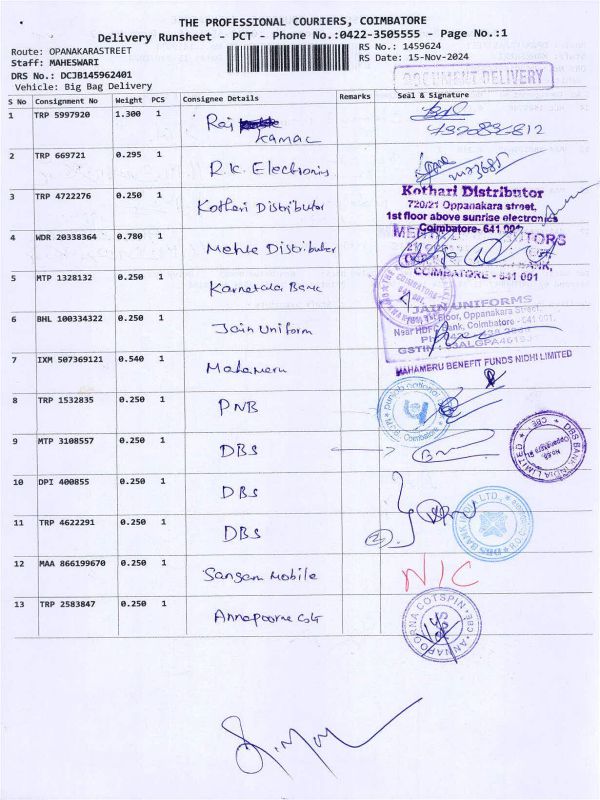 THE PROFESSIONAL COURIERS, COIMBATORE
Delivery Runsheet - PCT - Phone No.:0422-3505555 - Page No.:1
Route: OPANAKARASTREET
RS No.: 1459624
Staff: MAHESWARI
RS Date: 15-Nov-2024
DRS No.: DCJB145962401
Vehicle: Big Bag Delivery
DOCUMENT DELIVERY
S No Consignment No Weight PCS Consignee Details Remarks Seal & Signature
1 TRP 5997920 1.300 1 Raj
2 TRP 669721 0.295 1 R.K. Electronics
3 TRP 4722276 0.250 1 Kothari Distributor
Kothari Distributor
720/21 Oppanakara street,
1st floor above sunrise electronics
Coimbatore- 641 001
4 WDR 20338364 0.780 1 Mehta Distributor
COIMBATORE - 641 001
5 MTP 1328132 0.250 1 Karnataka Bank
6 BHL 100334322 0.250 1 Jain Uniform
JAIN UNIFORMS
Floor, Oppanakara Street
Near HDFC Bank, Coimbatore - 641 001.
7 IXM 507369121 0.540 1 Mahameru
MAHAMERU BENEFIT FUNDS NIDHI LIMITED
8 TRP 1532835 0.250 1 PNB
punjab national
Coimbatore
9 MTP 3108557 0.250 1 DBS
DBS BANK INDIA LIMITED CBE
10 DPI 400855 0.250 1 DBS
11 TRP 4622291 0.250 1 DBS
12 MAA 866199670 0.250 1 Sangam Mobile N/C
13 TRP 2583847 0.250 1 Annapoorna
ANNAPOORNA COTSPIN CBE